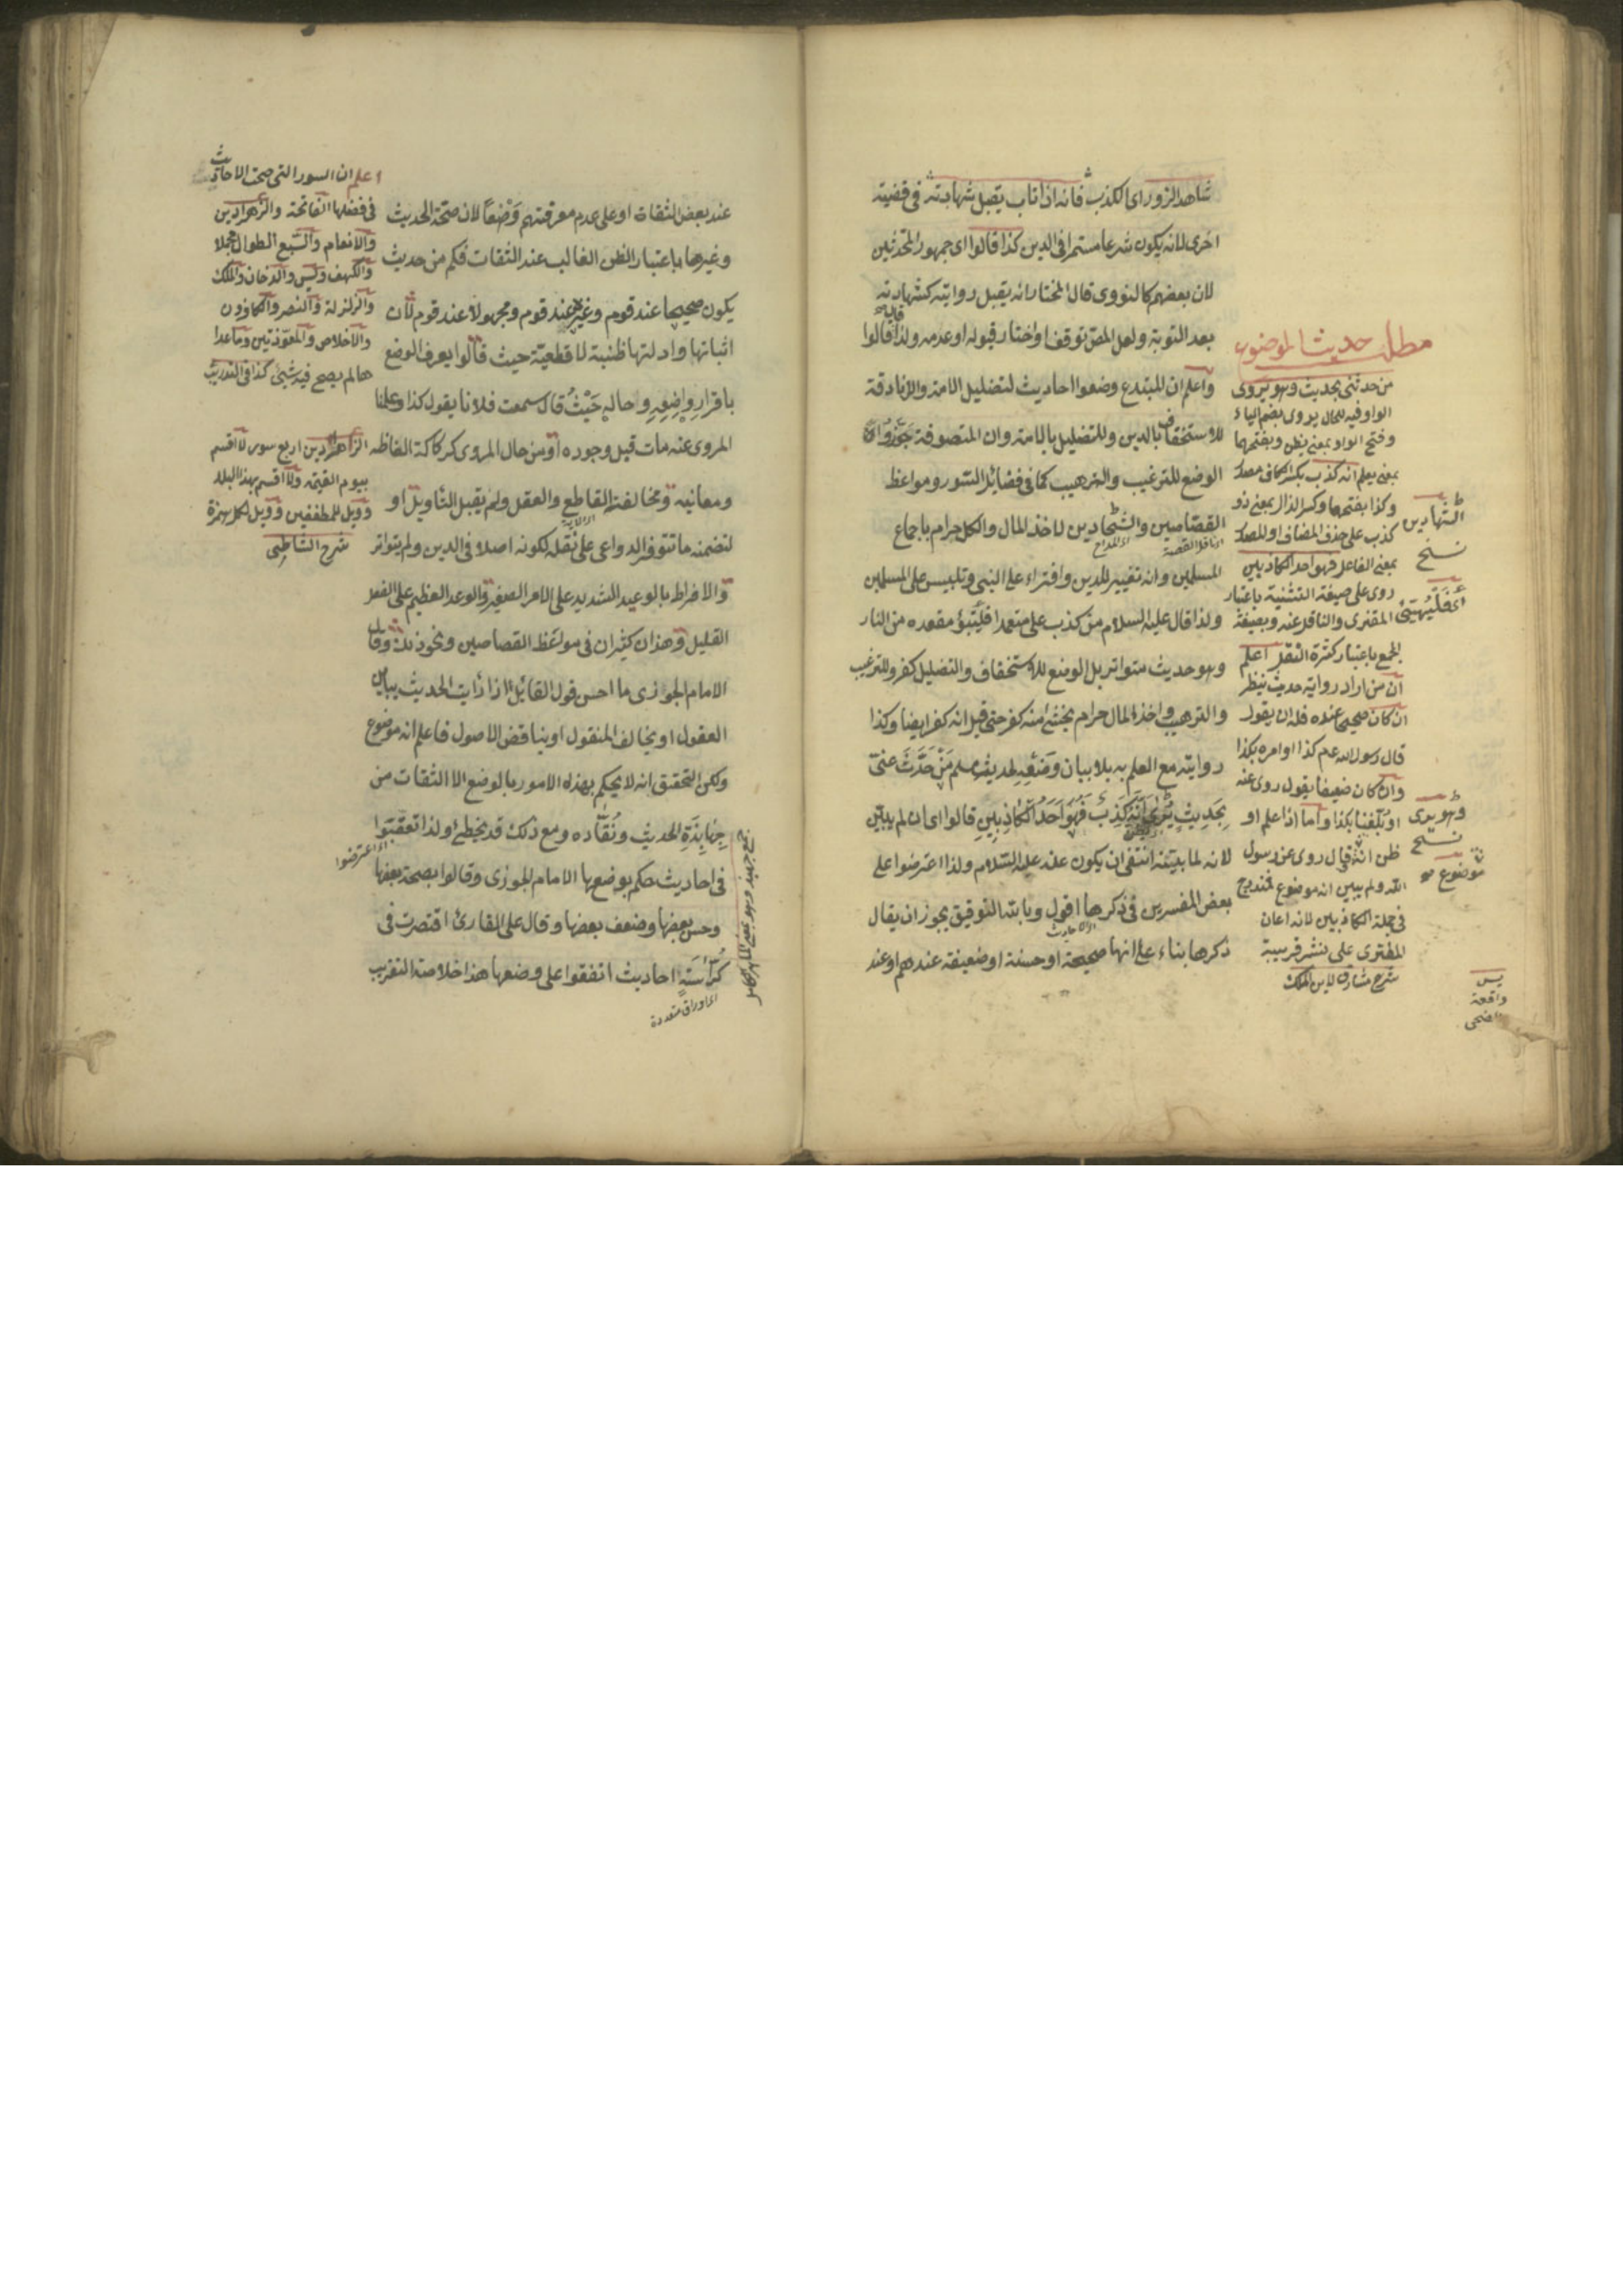 شاهد الزور اى الكذب فانه اذا تاب يقبل شهادته فى قضية
اخرى لانه يكون شرعا مستمرا فى الدين كذا قالوا اى جمهور المحدثين
لان بعضهم كالنووى قال المختار انه يقبل روايته كشهادته
بعد التوبة ولعل المص توقف او اختار قبوله او عدمه ولذا قالوا
واعلم ان المبتدع وضعوا احاديث لتضليل الامة والزنادقة
للاستخفاف بالدين وللتضليل بالامة وان المتصوفة جوزوا
الوضع للترغيب والترهيب كما فى فضائل السور ومواعظ
القصاصين والشحادين لاخذ المال والكل حرام باجماع
اى ناقل القصة
المسلمين وانه تغيير للدين وافتراء على النبى وتلبيس على المسلمين
ولذا قال عليه السلام من كذب على متعمدا فليتبؤ مقعده من النار
وهو حديث متواتر بل الوضع للاستخفاف والتضليل كفر وللترغيب
والترهيب واخذ المال حرام يخشى منه كفر حتى قيل انه كفر ايضا وكذا
روايته مع العلم به بلا بيان وضعه لحديث مسلم من حدث عنى
بحديث يرى انه كذب فهو احد الكاذبين قالوا اى ان لم يبين
لانه لما بينه انتفى ان يكون عنه عليه السلام ولذا اعترضوا على
بعض المفسرين فى ذكرها اقول وبالله التوفيق يجوز ان يقال
اى الاحاديث
ذكرها بناء على انها صحيحة او حسنة او ضعيفة عندهم او عند
مطلب حديث الموضوع
من حدثنى بحديث وهو يروى
الواو فيه للحال يروى بضم الياء
وفتح الواو بمعنى يظن وبفتحها
بمعنى يعلم انه كذب بكسر الكاف مصدر
وكذا بفتحها وكسر الذال بمعنى ذو
كذب على حذف المضاف او المصدر
بمعنى الفاعل فهو احد الكاذبين
روى على صيغة التثنية باعتبار
المفترى والناقل عنه وبصيغة
الجمع باعتبار كثرة النقل اعلم
ان من اراد رواية حديث ينظر
ان كان صحيحا عنده فله ان يقول
قال رسول الله عم كذا او امره بكذا
وان كان ضعيفا يقول روى عنه
او بلغنا بكذا واما اذا علم او
ظن انه قال روى عن رسول
الله ولم يبين انه موضوع فمندرج
فى جملة الكاذبين لانه اعان
المفترى على نشر فريته
شرح مشارق لابن الملك
نسخ
وهو يرى
نسخ
موضوع
يس
واقعة
والضحى
عند بعض الثقات او على عدم معرفتهم وضعا لان صحة الحديث
وغيرها باعتبار الظن الغالب عند الثقات فكم من حديث
يكون صحيحا عند قوم وغيره عند قوم ومجهولا عند قوم لان
اثباتها وادلتها ظنية لا قطعية حيث قالوا يعرف الوضع
باقرار واضعه وحاله حيث قال سمعت فلانا يقول كذا وعلمنا
المروى عنه مات قبل وجوده او من حال المروى كركاكة الفاظه
ومعانيه ومخالفة القاطع والعقل ولم يقبل التأويل او
لتضمنه ما تتوفر الدواعى على نقله لكونه اصلا فى الدين ولم يتواتر
والافراط بالوعيد الشديد على الامر الصغير والوعد العظيم على الفعل
القليل وهذان كثيران فى مواعظ القصاصين ونحو ذلك وقال
الامام الجوزى ما احسن قول القائل اذا رأيت الحديث يباين
العقول او يخالف المنقول او يناقض الاصول فاعلم انه موضوع
ولكن التحقيق انه لا يحكم بهذه الامور بالوضع الا الثقات من
جهابذة الحديث ونقاده ومع ذلك قد يخطئ ولذا تعقبوا
اى اعترضوا
فى احاديث حكم بوضعها الامام الجوزى وقالوا بصحة بعضها
وحسن بعضها وضعف بعضها وقال على القارئ اقتصرت فى
كراسة احاديث اتفقوا على وضعها هذا خلاصة التقريب
اى اوراق متعددة
اعلم ان السور التى صحت الاحاديث
فى فضلها الفاتحة والزهراوين
والانعام والسبع الطوال مجملا
والكهف ويس والدخان والملك
والزلزلة والنصر والكافرون
والاخلاص والمعوذتين وما عدا
هالم يصح فيه شيئ كذا فى التدريب
اربع سور لا اقسم
بيوم القيمة ولا اقسم بهذا البلد
وويل للمطففين وويل لكل همزة
شرح الشاطبى